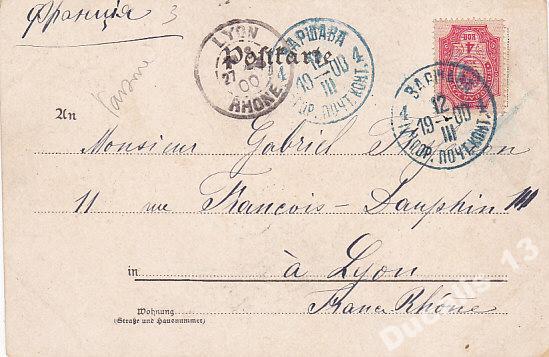 Франція 3
LYON
27
00
RHONE
Postkarte
ВАРШАВА
12
19-00
III
4 4
ГОР. ПОЧТ. КОНТ.
4
КОП.
ВАРШАВА
12
19-00
III
4 4
ГОР. ПОЧТ. КОНТ.
An
Monsieur Gabriel
11 rue François-Dauphin 11
in à Lyon
France Rhône
Wohnung
(Straße und Hausnummer)
Ducralis 13